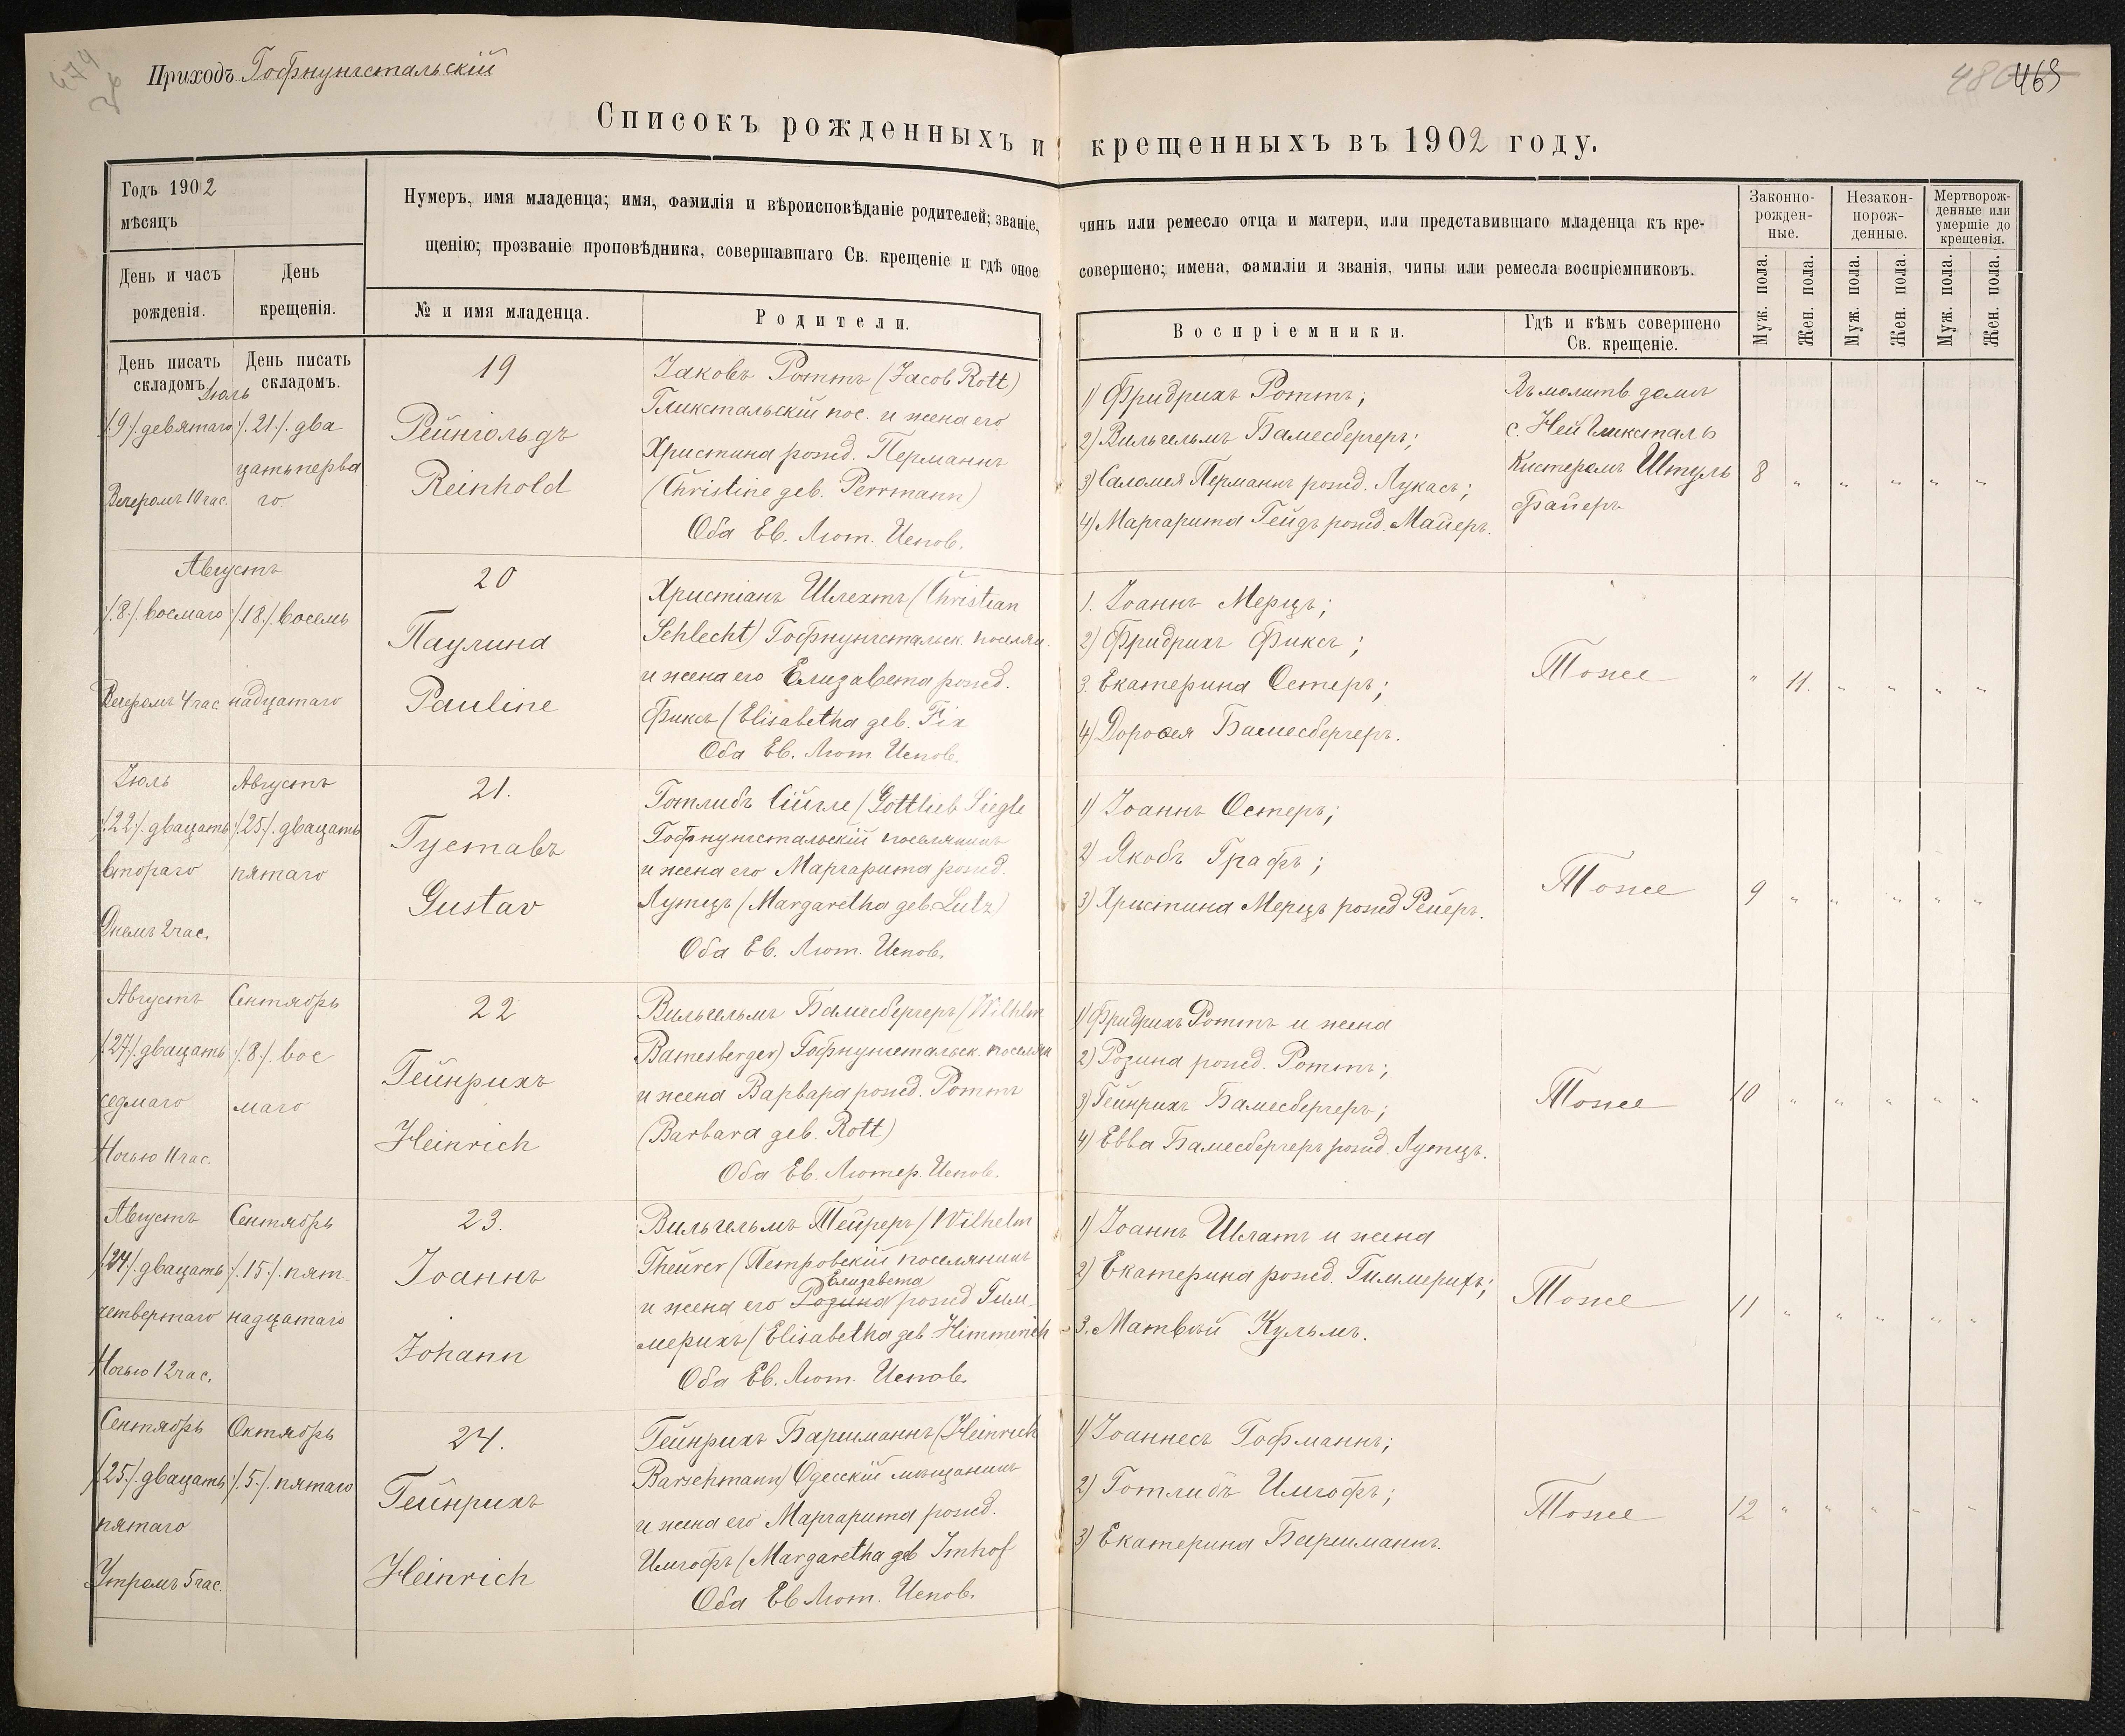 Приходъ Гофнунгстальскій
480 469
Списокъ рожденныхъ и крещенныхъ въ 1902 году.
Годъ 1902
мѣсяцъ
День и часъ рожденія.
День крещенія.
Нумеръ, имя младенца; имя, фамилія и вѣроисповѣданіе родителей; званіе, чинъ или ремесло отца и матери, или представившаго младенца къ кре-
щенію; прозваніе проповѣдника, совершавшаго Св. крещеніе и гдѣ оное совершено; имена, фамиліи и званія, чины или ремесла воспріемниковъ.
№ и имя младенца.
Родители.
Воспріемники.
Гдѣ и кѣмъ совершено
Св. крещеніе.
Законно-
рожден-
ные.
Незакон-
норож-
денные.
Мертворож-
денные или
умершіе до
крещенія.
Муж. пола.
Жен. пола.
Муж. пола.
Жен. пола.
Муж. пола.
Жен. пола.
День писать
складомъ.
День писать
складомъ.
Іюль
/.9/. девятаго
Вечеромъ 10 час.
/.21./. два
цатьперва
го
19
Рейнгольдъ
Reinhold
Іаковъ Роттъ (Jacob Rott)
Гликстальскій пос. и жена его
Христина рожд. Перманнъ
(Christine geb. Perrmann)
Оба Ев. Лют. Испов.
1) Фридрихъ Роттъ;
2) Вильгельмъ Бамесбергеръ;
3) Саломея Перманнъ рожд. Лукасъ;
4) Маргарита Гейдъ рожд. Майеръ.
Въ молитв. домѣ
с. Ней Гликсталь
Кистеромъ Штуль
файеръ
8 " " " " "
Августъ
/.8./. восмаго
Вечеромъ 4 час
/.18./. восемь
надцатаго
20
Паулина
Pauline
Христіанъ Шлехтъ (Christian
Schlecht) Гофнунгстальск. поселян.
и жена его Елизавета рожд.
Фиксъ (Elisabetha geb. Fix
Оба Ев. Лют. Испов.
1. Іоаннъ Мерцъ;
2) Фридрихъ Фиксъ;
3. Екатерина Остеръ;
4) Доровея Бамесбергеръ.
Тоже
" 11. " " " "
Іюль
/.22/. двацать
втораго
Днемъ 2 час.
Августъ
/.25/. двацать
пятаго
21.
Густавъ
Gustav
Готлибъ Сійгле (Gottlieb Siegle
Гофнунгстальскій поселянинъ
и жена его Маргарита рожд.
Лутцъ (Margaretha geb. Lutz)
Оба Ев. Лют. Испов.
1) Іоаннъ Остеръ;
2) Якобъ Графъ;
3) Христина Мерцъ рожд Рейеръ.
Тоже
9 " " " " "
Августъ
/.27/. двацать
седмаго
Ночью 11 час.
Сентябрь
/.8./. вос
маго
22
Гейнрихъ
Heinrich
Вильгельмъ Бамесбергеръ (Wilhlm
Bamesberger) Гофнунгстальск. поселян
и жена Варвара рожд. Роттъ
(Barbara geb. Rott)
Оба Ев. Лютер. Испов.
1) Фридрихъ Роттъ и жена
2) Розина рожд. Роттъ;
3) Гейнрихъ Бамесбергеръ;
4) Евва Бамесбергеръ рожд. Лутцъ.
Тоже
10 " " " " "
Августъ
/.24/. двацать
четвертаго
Ночью 12 час.
Сентябрь
/.15./. пят
надцатаго
23.
Іоаннъ
Johann
Вильгельмъ Тейреръ (Wilhelm
Theurer (Петровскій поселянинъ
Елизавета
и жена его Розина рожд Гим-
мерихъ (Elisabetha geb Himmerich
Оба Ев. Лют. Испов.
1) Іоаннъ Шлатъ и жена
2) Екатерина рожд. Гиммерихъ;
3. Матвѣй Кульмъ.
Тоже
11 " " " " "
Сентябрь
/.25/. двацать
пятаго
Утромъ 5 час.
Октябрь
/.5./. пятаго
24.
Гейнрихъ
Heinrich
Гейнрихъ Баршманнъ (Heinrich
Barschmann) Одесскій мѣщанинъ
и жена его Маргарита рожд.
Имгофъ (Margaretha geb Imhof
Оба Ев Лют. Испов.
1) Іоаннесъ Гофманнъ;
2) Готлибъ Имгофъ;
3) Екатерина Баршманнъ.
Тоже
12 " " " " "